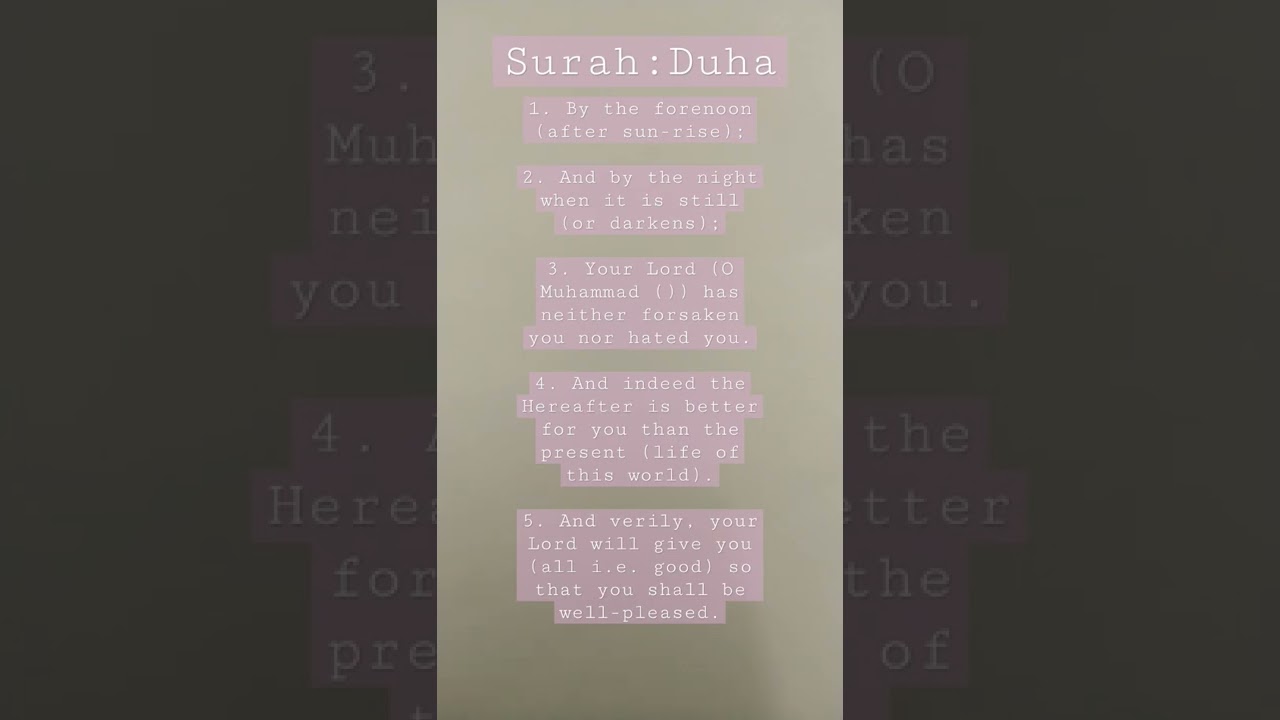 Surah:Duha
1. By the forenoon
(after sun-rise);
2. And by the night
when it is still
(or darkens);
3. Your Lord (O
Muhammad ()) has
neither forsaken
you nor hated you.
4. And indeed the
Hereafter is better
for you than the
present (life of
this world).
5. And verily, your
Lord will give you
(all i.e. good) so
that you shall be
well-pleased.